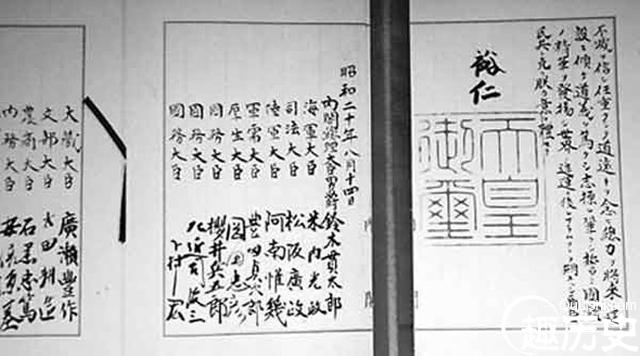 不滅ヲ信シ任重クシテ道遠キヲ念ヒ總力ヲ將來ノ建
設ニ傾ケ道義ヲ篤クシ志操ヲ鞏クシ誓テ國體
ノ精華ヲ發揚シ世界ノ進運ニ後レサラムコトヲ期スヘシ
民其レ克ク朕カ意ヲ體セヨ
裕仁
天皇
御璽
昭和二十年八月十四日
內閣總理大臣男爵 鈴木貫太郎
海軍大臣 米内光政
司法大臣 松阪廣政
陸軍大臣 阿南惟幾
軍需大臣 豊田貞次郎
厚生大臣 岡田忠彦
國務大臣 櫻井兵五郎
國務大臣 左近司政三
國務大臣 下村宏
大藏大臣 廣瀬豊作
文部大臣 太田耕造
農商大臣 石黒忠篤
内務大臣 安倍源基
趣历史